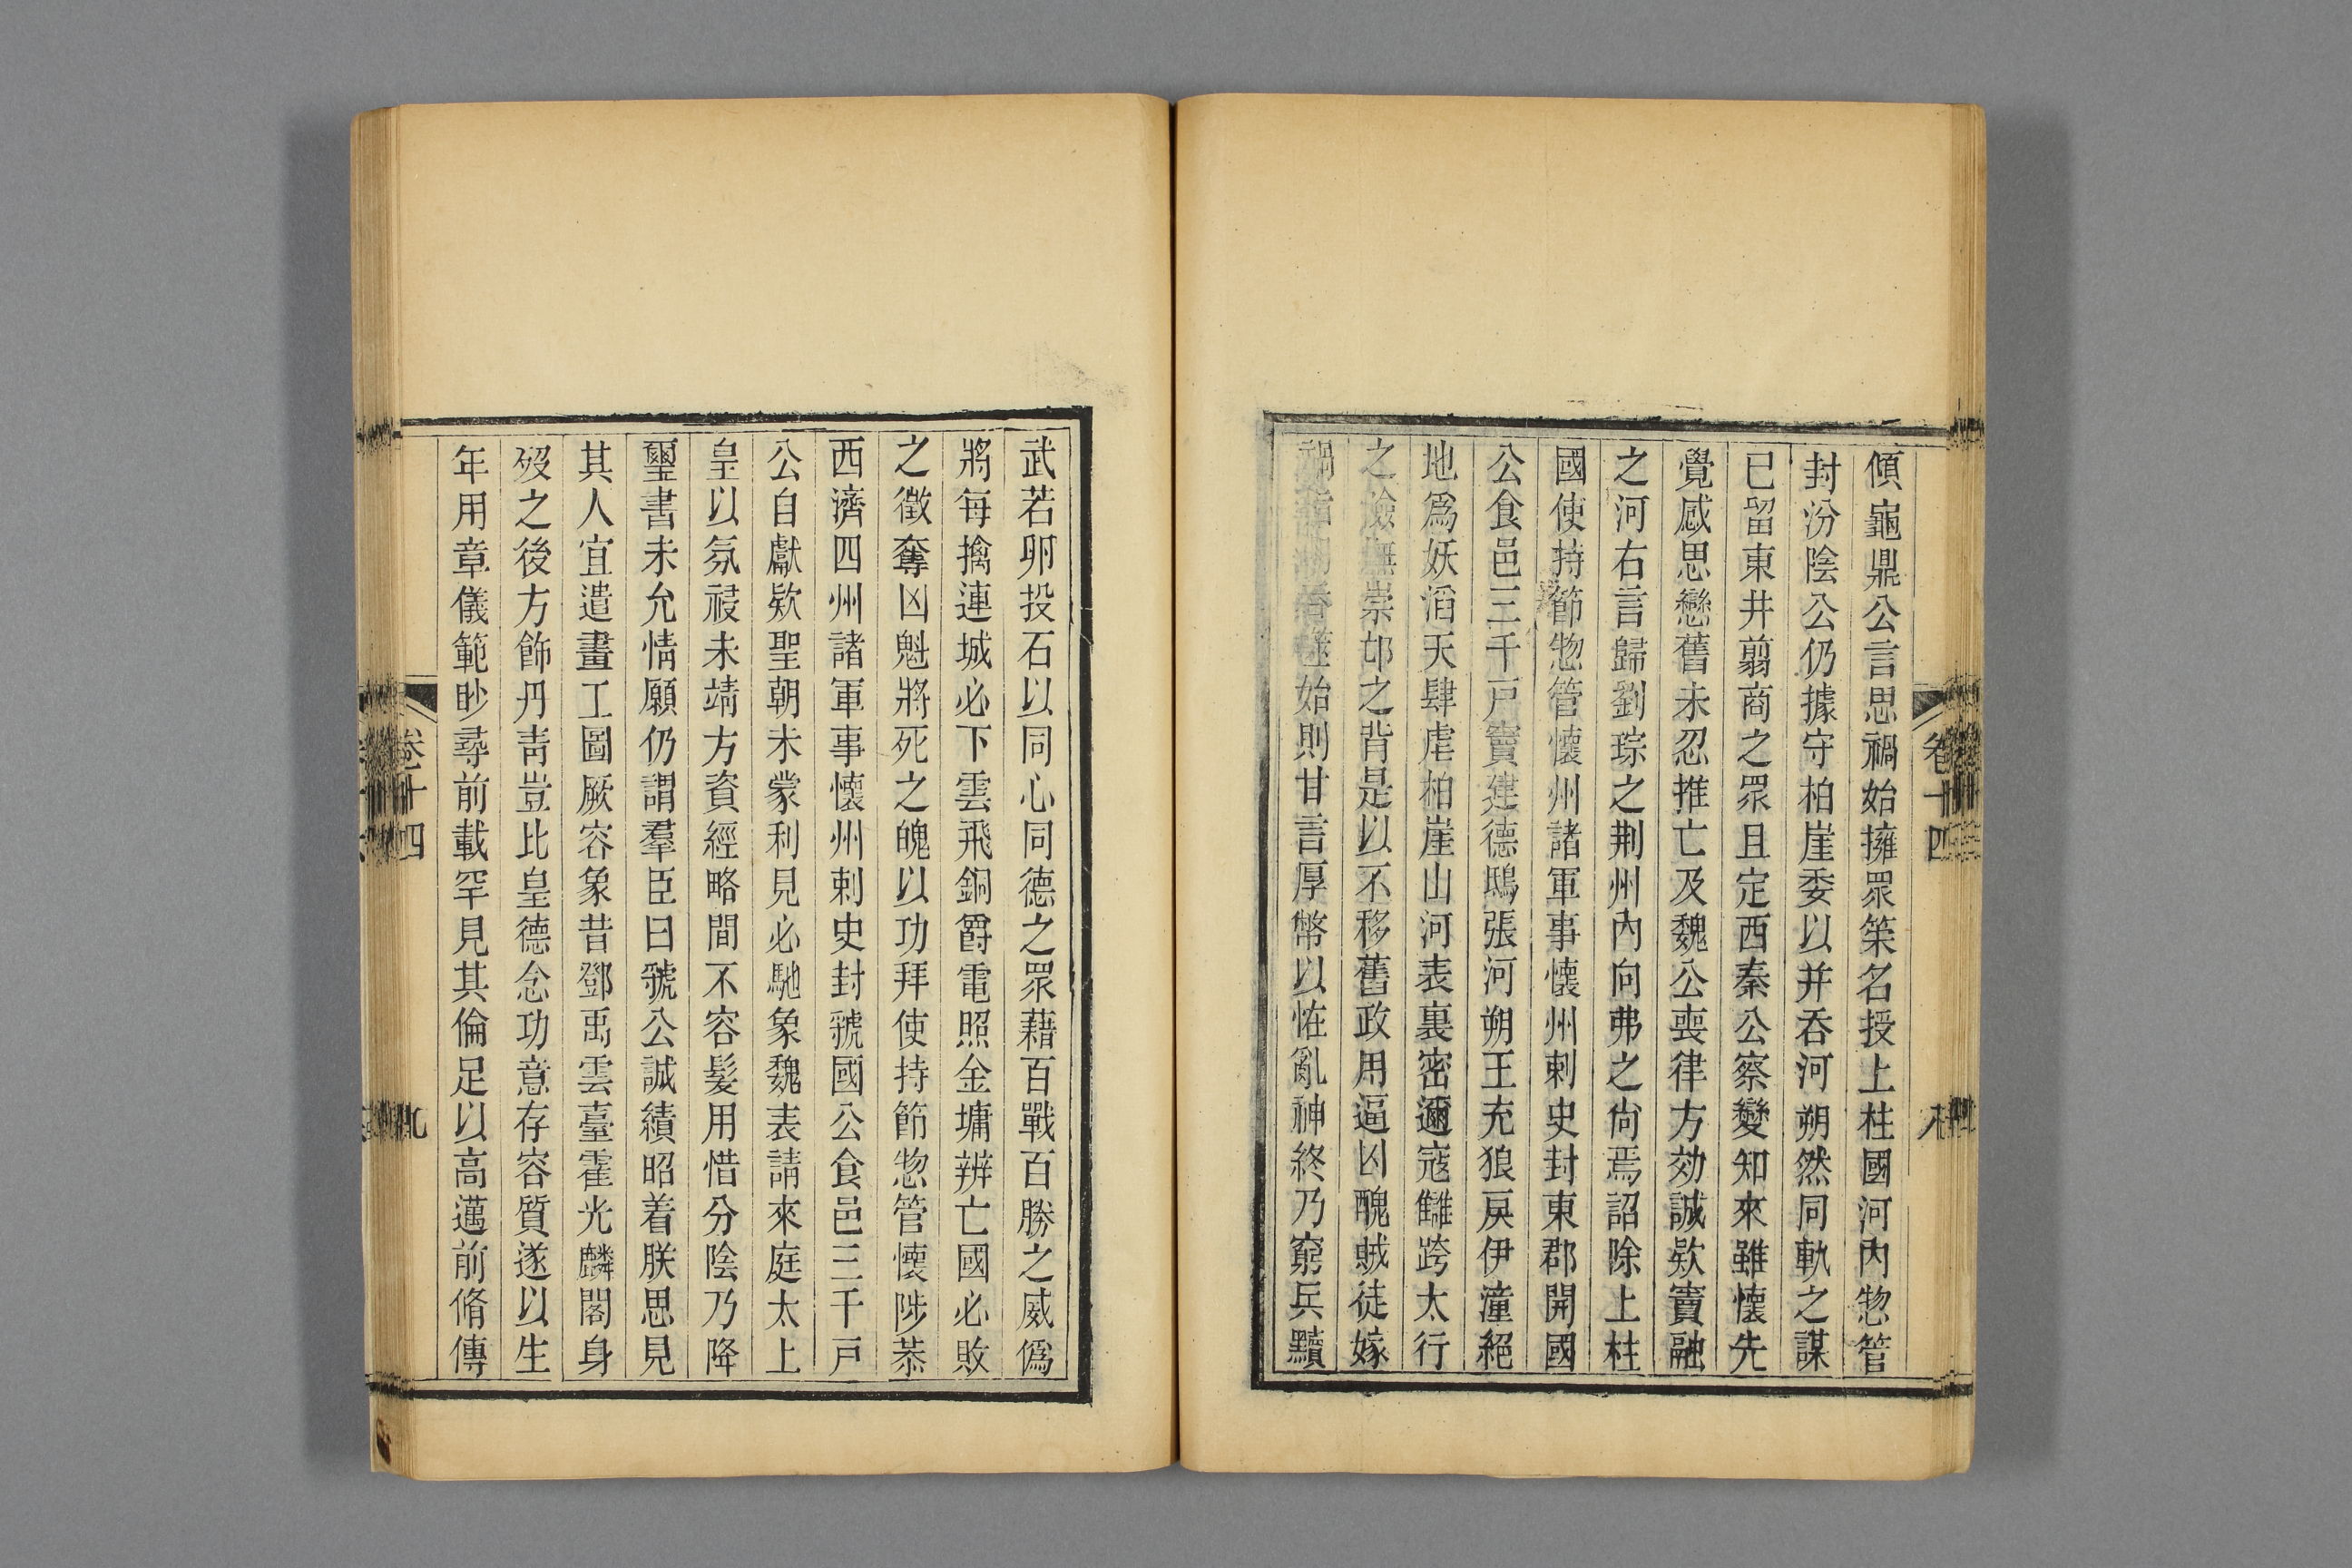 傾龜鼎公言思禍始擁眾筞名授上柱國河內惣管
封汾陰公仍據守柏崖委以并吞河朔然同軌之謀
已留東井翦商之眾且定西秦公察變知來雖懷先
覺感思戀舊未忍推亡及魏公喪律方効誠欵竇融
之河右言歸劉琮之荆州內向弗之尙焉詔除上柱
國使持節惣管懷州諸軍事懷州刺史封東郡開國
公食邑三千戸竇建德鴟張河朔王充狼戻伊瀍絕
地爲妖滔天肆虐柏崖山河表裏密邇寇讎跨太行
之險無崇邙之背是以不移舊政用逼凶醜賊徒嫁
禍始則甘言厚幣以恠亂神終乃窮兵黷
武若卵投石以同心同德之眾藉百戰百勝之威僞
將每擒連城必下雲飛銅爵電照金墉辨亡國必敗
之徵奪凶魁將死之魄以功拜使持節惣管懷陟黍
西濟四州諸軍事懷州刺史封虢國公食邑三千戸
公自獻欵聖朝未蒙利見必馳象魏表請來庭太上
皇以氛祲未靖方資經略間不容髮用惜分陰乃降
璽書未允情願仍謂羣臣曰虢公誠績昭着朕思見
其人宜遣畫工圖厥容象昔鄧禹雲臺霍光麟閣身
歿之後方飾丹靑豈比皇德念功意存容質遂以生
年用章儀範眇尋前載罕見其倫足以高邁前脩傳
卷十四
八
卷十四
九